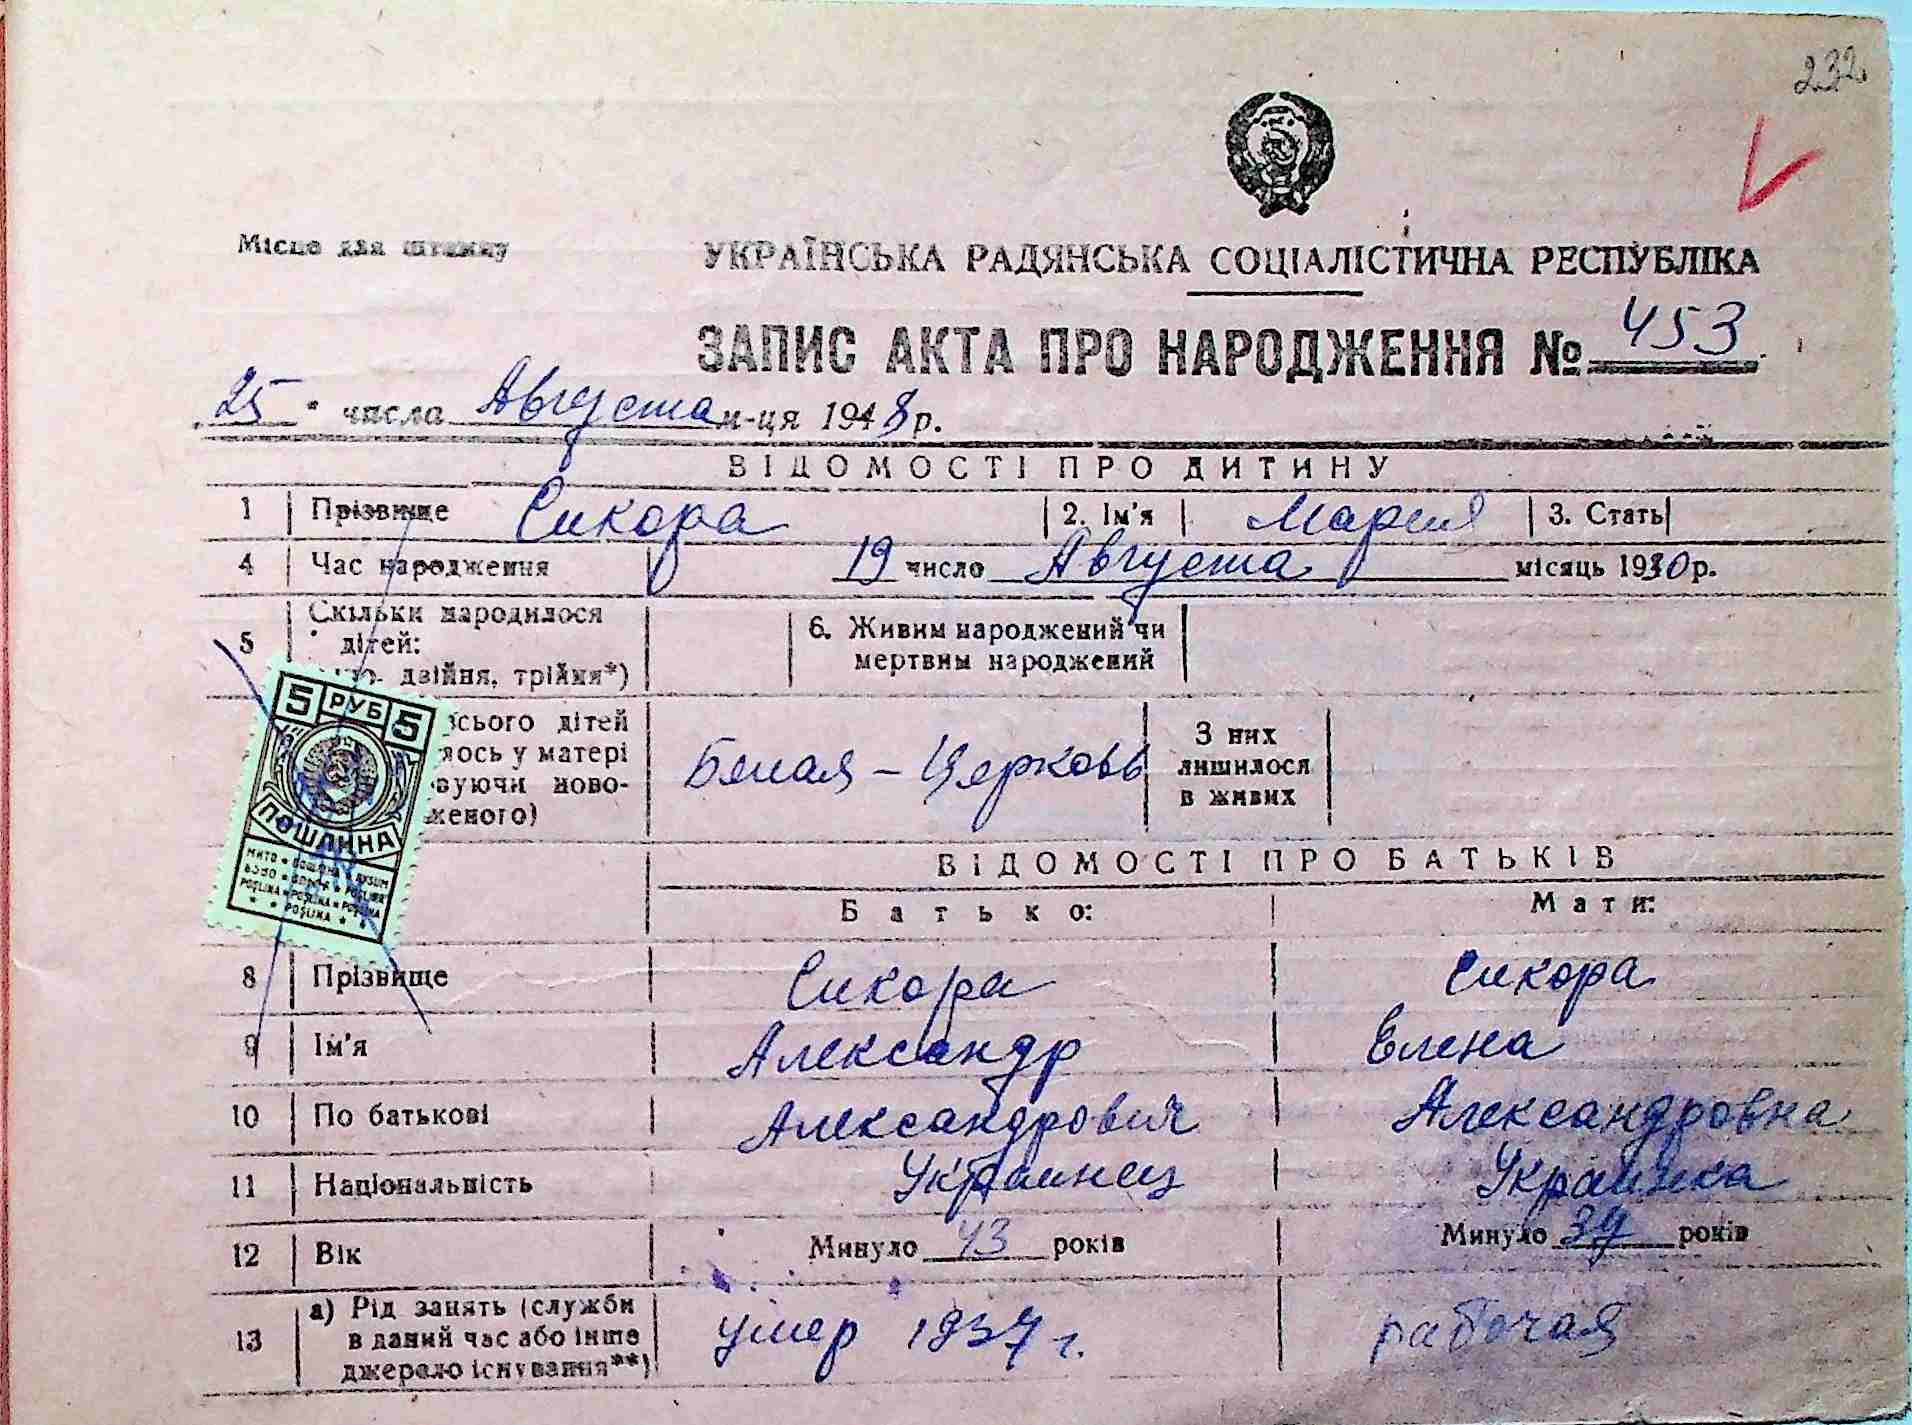 232
Місце для штампу
УКРАЇНСЬКА РАДЯНСЬКА СОЦІАЛІСТИЧНА РЕСПУБЛІКА
ЗАПИС АКТА ПРО НАРОДЖЕННЯ № 453
25 числа Августа м-ця 1948 р.
ВІДОМОСТІ ПРО ДИТИНУ
1 Прізвище Сикора 2. Ім'я Мария 3. Стать
4 Час народження 19 число Августа місяць 1930 р.
Скільки народилося
5 дітей:
двійня, трійня*)
6. Живим народжений чи
мертвим народжений
сього дітей
лось у матері
вуючи ново-
женого)
Белая - Церковь
З них
лишилося
в живих
5 РУБ 5
ПОШЛИНА
ВІДОМОСТІ ПРО БАТЬКІВ
Батько: Мати:
8 Прізвище Сикора Сикора
9 Ім'я Александр Елена
10 По батькові Александрович Александровна
11 Національність Украинец Украинка
12 Вік Минуло 43 років Минуло 39 років
а) Рід занять (служби
13 в даний час або інше
джерело існування**)
умер 1937 г. рабочая